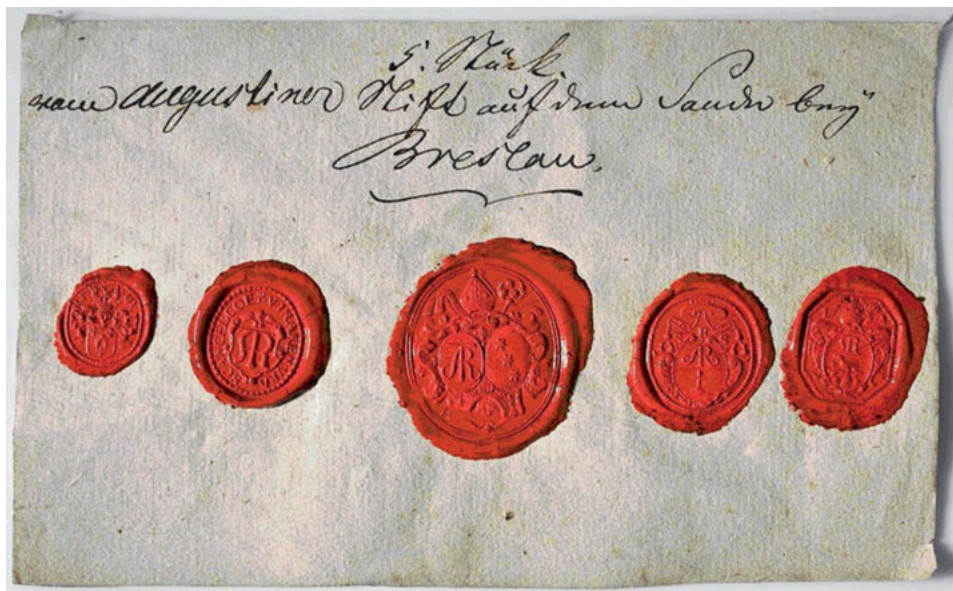 5. Stück
vom Augustiner Stift auf dem Sande bey
Breslau.